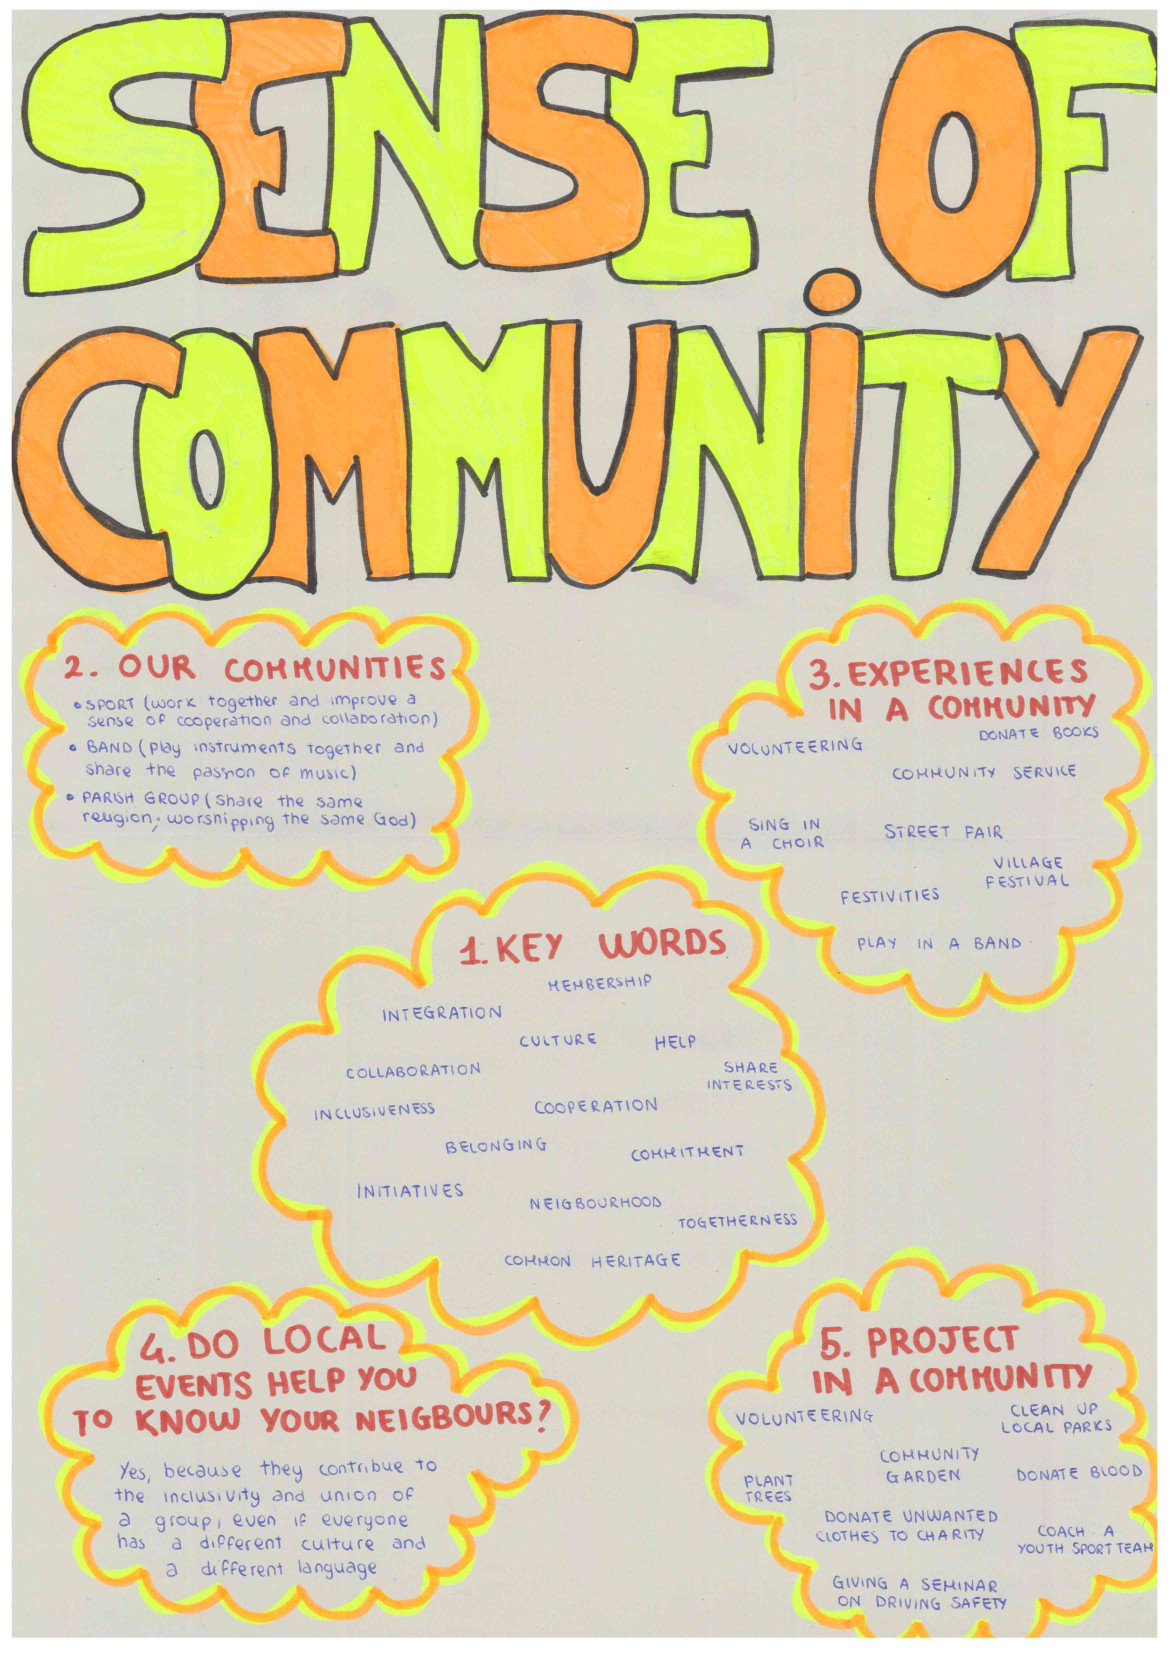 SENSE OF
COMMUNiTY
2. OUR COMMUNITIES
• SPORT (work together and improve a
sense of cooperation and collaboration)
• BAND (play instruments together and
share the passion of music)
• PARISH GROUP (share the same
religion; worshipping the same God)
3. EXPERIENCES
IN A COMMUNITY
DONATE BOOKS
VOLUNTEERING
COMMUNITY SERVICE
SING IN
A CHOIR
STREET FAIR
VILLAGE
FESTIVAL
FESTIVITIES
PLAY IN A BAND
1. KEY WORDS
MEMBERSHIP
INTEGRATION
CULTURE
HELP
COLLABORATION
SHARE
INTERESTS
INCLUSIVENESS
COOPERATION
BELONGING
COMMITMENT
INITIATIVES
NEIGBOURHOOD
TOGETHERNESS
COMMON HERITAGE
4. DO LOCAL
EVENTS HELP YOU
TO KNOW YOUR NEIGBOURS?
Yes, because they contribue to
the inclusivity and union of
a group, even if everyone
has a different culture and
a different language
5. PROJECT
IN A COMMUNITY
VOLUNTEERING
CLEAN UP
LOCAL PARKS
COMMUNITY
GARDEN
PLANT
TREES
DONATE BLOOD
DONATE UNWANTED
CLOTHES TO CHARITY
COACH A
YOUTH SPORT TEAM
GIVING A SEMINAR
ON DRIVING SAFETY